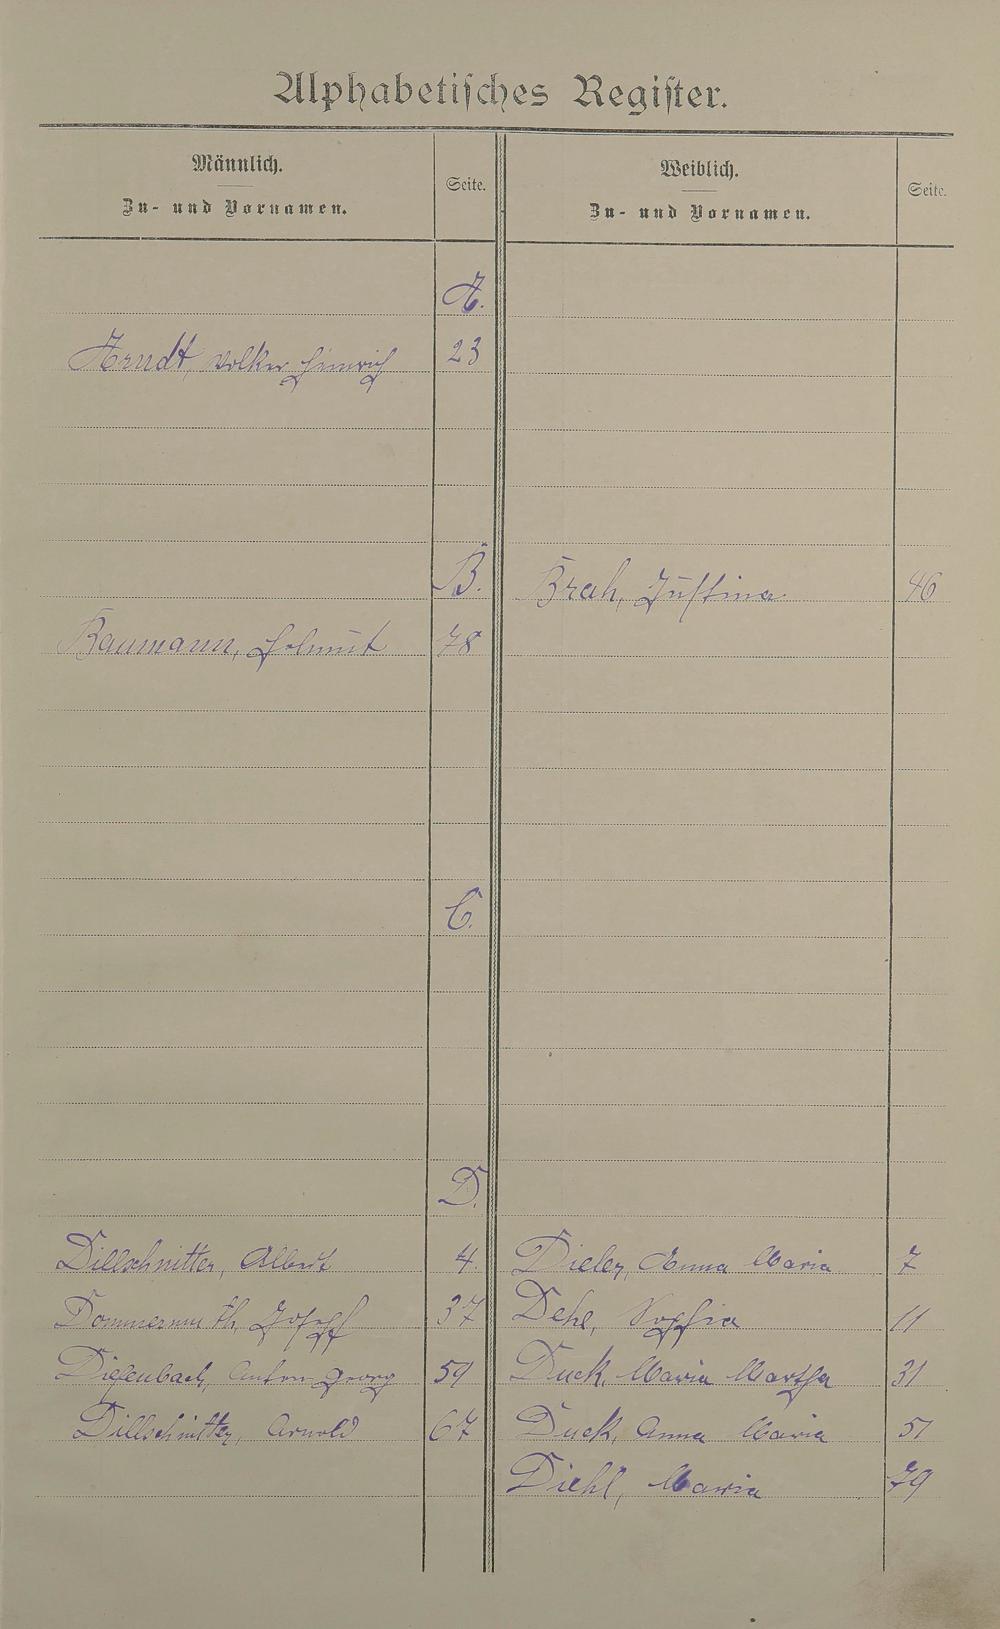 Alphabetisches Register.
Männlich.
Zu- und Vornamen.
Seite.
Weiblich.
Zu- und Vornamen.
Seite.
A.
Arndt, Volker Heinrich 23
B. Brah, Justina 46
Baumann, Helmut 78
C.
D.
Dillschnitter, Albert 4. Dieler, Anna Maria 7
Dommermuth, Josef 37 Dehe, Sophia 11
Diefenbach, Anton Georg 59 Duck, Maria Martha 31
Dillschnitter, Arnold 67 Duck, Anna Maria 51
Diehl, Maria 79